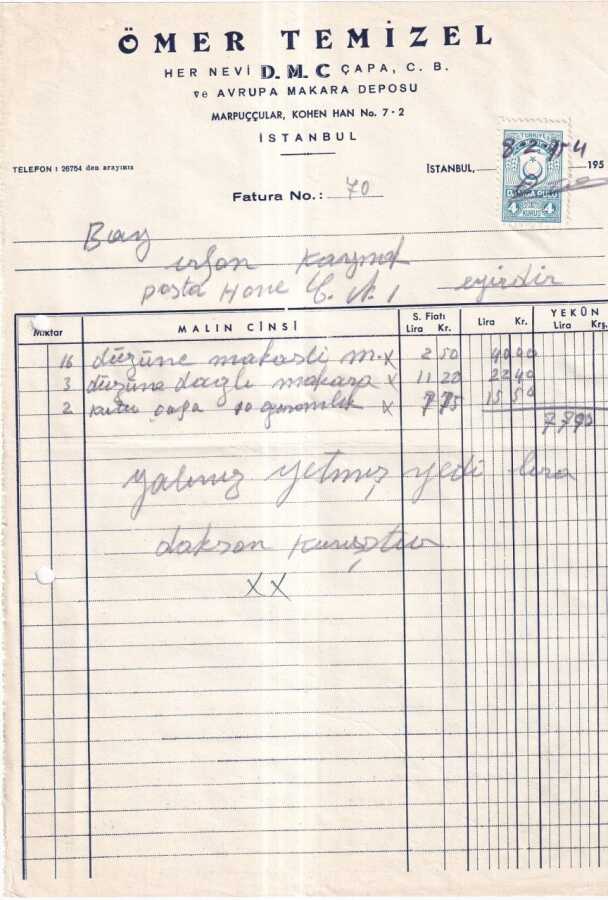 ÖMER TEMİZEL
HER NEVİ D.M.C ÇAPA, C. B.
ve AVRUPA MAKARA DEPOSU
MARPUÇÇULAR, KOHEN HAN No. 7-2
İSTANBUL
TELEFON : 26754 den arayınız
İSTANBUL, 8 2 954 195
TÜRKİYE
DAMGA PULU
4 KURUŞ 4
Fatura No.: 70
Bay
irfan Kaymak
posta Hane C. N. 1 eyirdir
Miktar MALIN CİNSİ S. Fiatı Lira Kr. Lira Kr. YEKÛN Lira Krş.
16 düzüne makasli m. x 2 50 40 00
3 düzüne daglı makara x 11 20 22 40
2 kutu çapa 10 gramlık x 7 75 15 50
77 90
yalınız yetmiş yedi lira
doksan kuruştur
xx